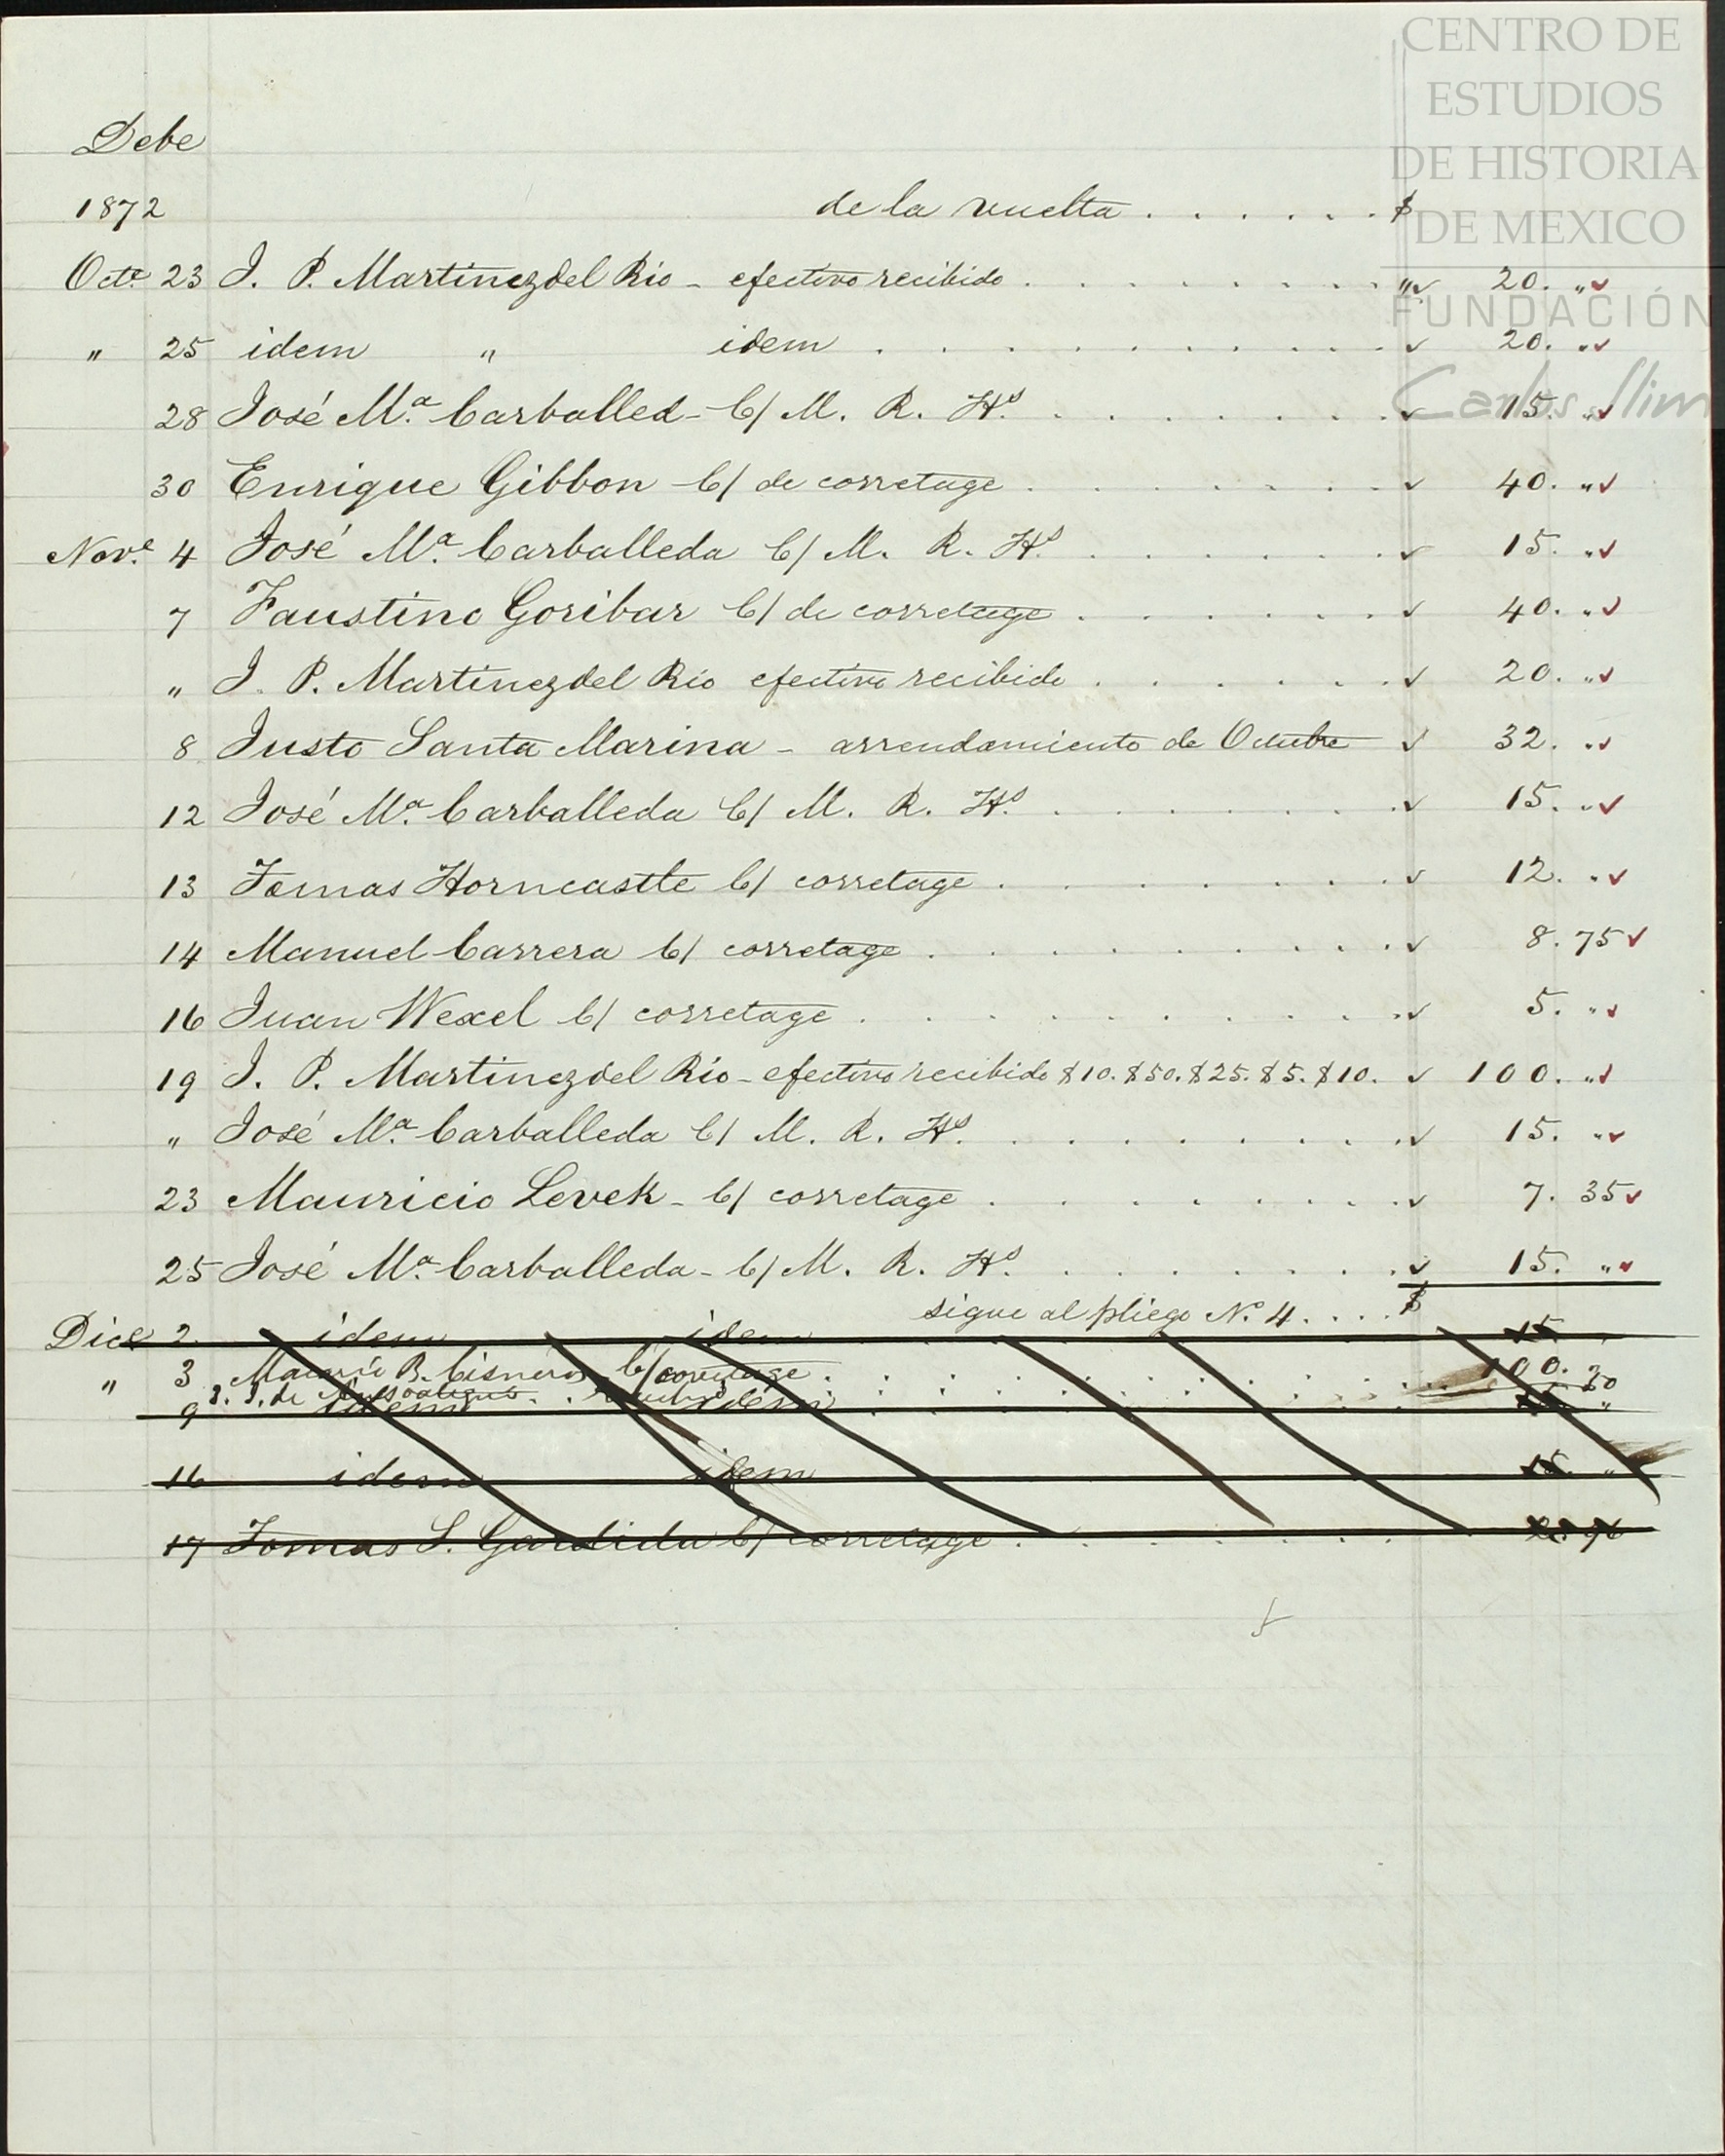 CENTRO DE
ESTUDIOS
DE HISTORIA
DE MEXICO
FUNDACIÓN
Carlos Slim
Debe
1872 de la vuelta . . . . . . $
Octe 23 J. P. Martinez del Rio - efectivo recibido . . . . . . . . " 20. "
" 25 idem " idem . . . . . . . . . 20. "
28 José Ma. Carballed - C/ M. R. Hs. . . . . . . 15. "
30 Enrique Gibbon - C/ de corretage . . . . . . . 40. "
Nove. 4 José Ma. Carballeda C/ M. R. Hs. . . . . . . 15. "
7 Faustino Goribar C/ de corretage . . . . . . 40. "
" J. P. Martinez del Rio efectivo recibido . . . . . . 20. "
8 Justo Santa Marina - arrendamiento de Octubre 32. "
12 José Ma. Carballeda C/ M. R. Hs. . . . . . . 15. "
13 Tomas Horncastle C/ corretage . . . . . . . 12. "
14 Manuel Carrera C/ corretage . . . . . . . . 8. 75
16 Juan Wexel C/ corretage . . . . . . . . . 5. "
19 J. P. Martinez del Rio - efectivo recibido $10. $50. $25. $5. $10. 100. "
" José Ma. Carballeda C/ M. R. Hs. . . . . . . . 15. "
23 Mauricio Levek - C/ corretage . . . . . . . 7. 35
25 José Ma. Carballeda - C/ M. R. Hs. . . . . . . 15. "
sigue al pliego No. 4 . . . . $
Dice 2 idem idem 15. "
" 3 B. Cisneros C/ corretage . . . . . . . 100.
9 idem idem . . . . . . . "
16 idem idem 15. "
17 Tomas S. C/ corretage . . . . . . .